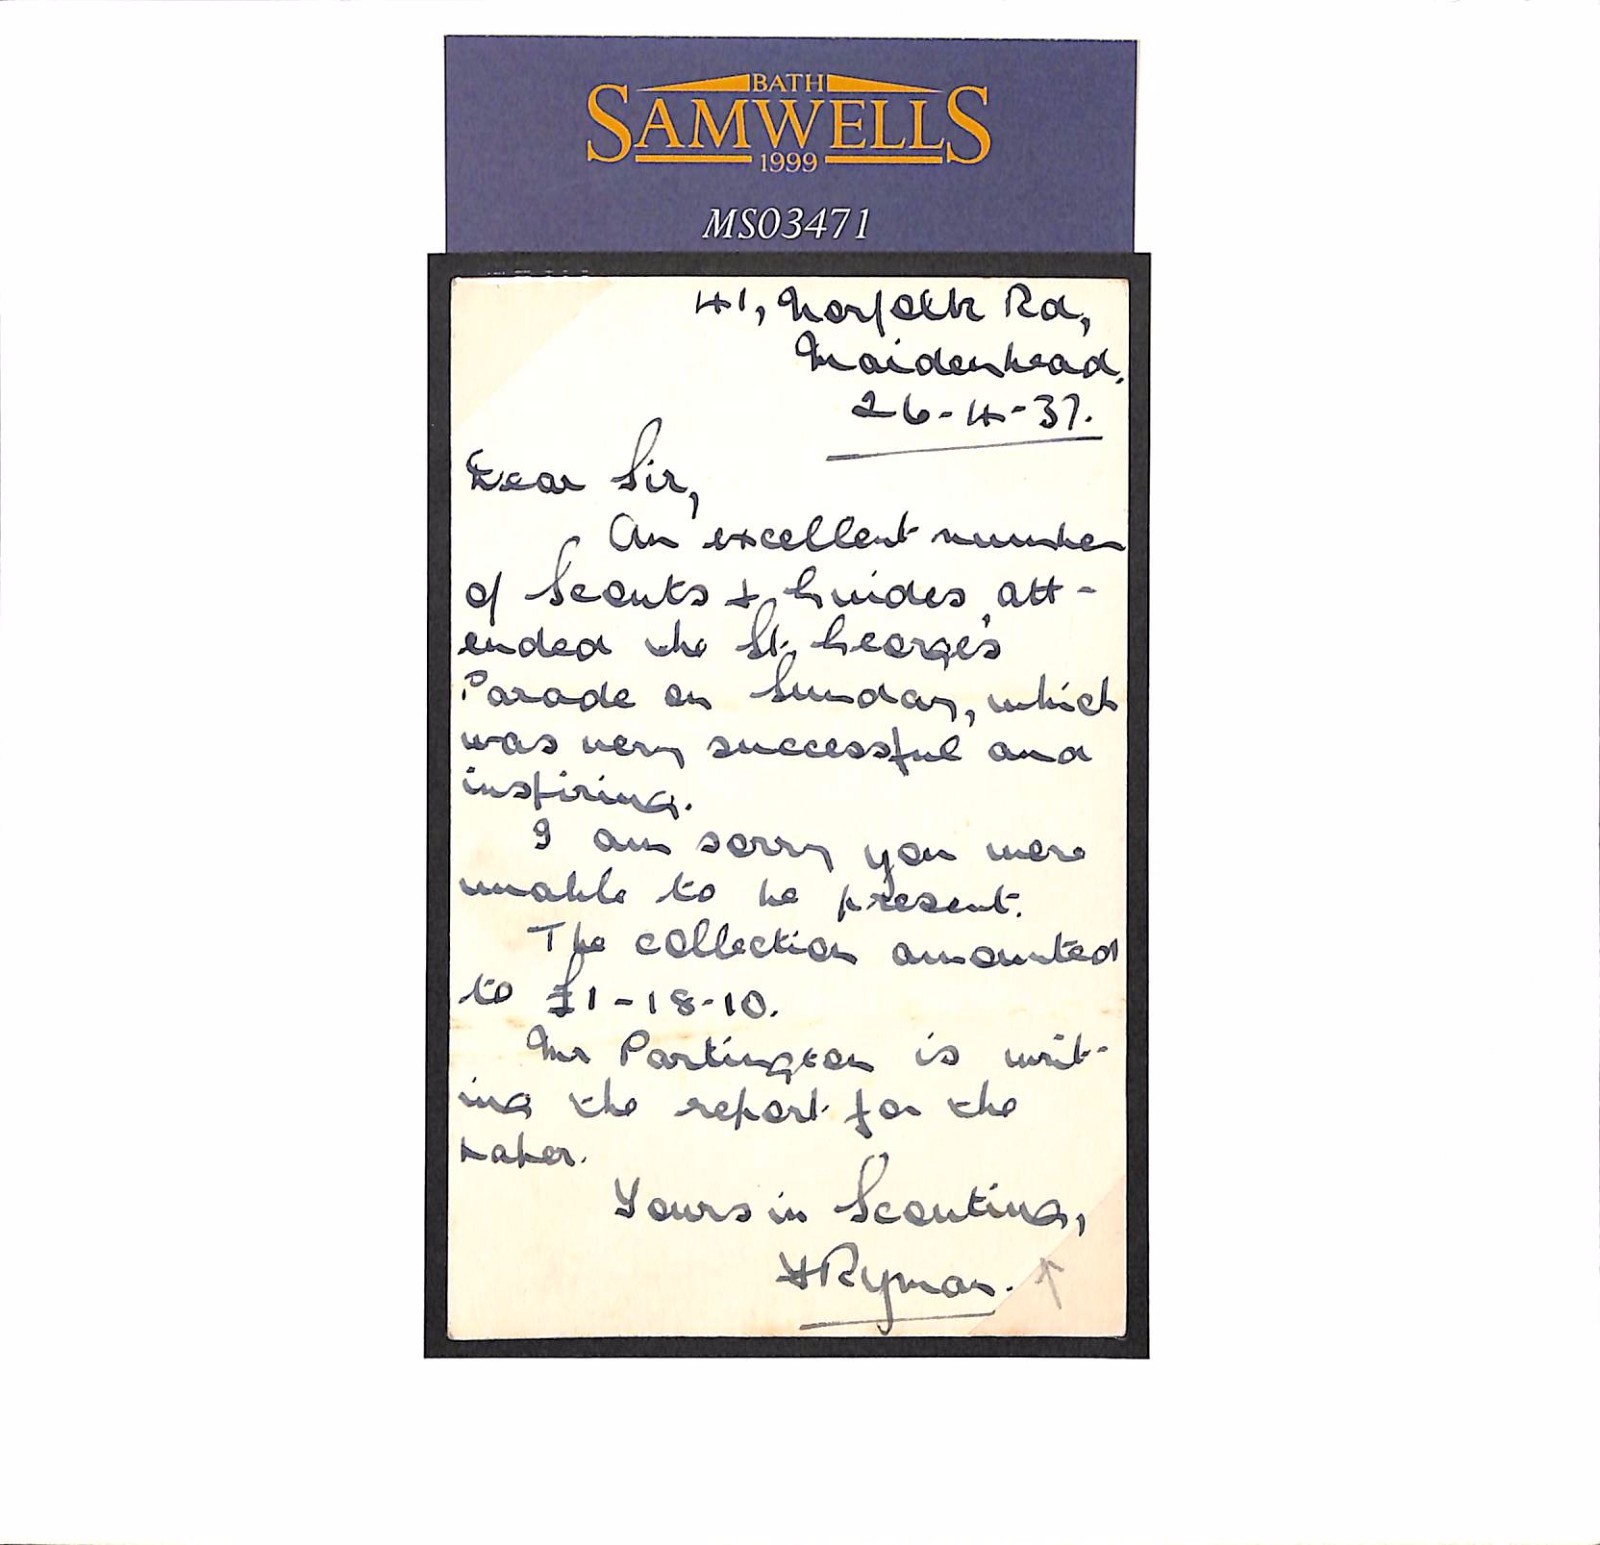 BATH
SAMWELLS
1999
MS03471
41, Norfolk Rd,
Maidenhead.
26-4-37.
Dear Sir,
An excellent number
of Scouts & Guides att-
ended the St. George's
Parade on Sunday, which
was very successful and
inspiring.
I am sorry you were
unable to be present.
The collection amounted
to £1-18-10.
Mr Partington is writ-
ing the report for the
paper.
Yours in Scouting,
H Ryman.